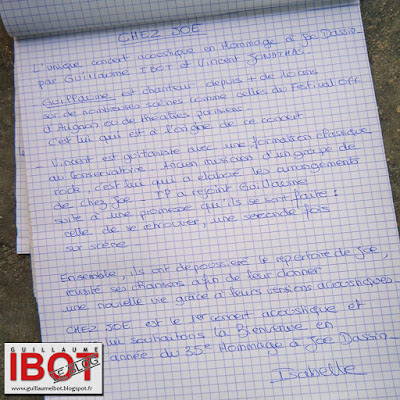 CHEZ JOE
L'unique concert acoustique en Hommage à Joe Dassin
par Guillaume IBOT et Vincent JONATHAS.
Guillaume est chanteur depuis + de 10 ans
sur de nombreuses scènes comme celles du Festival OFF
d'Avignon ou de théâtres parisiens.
C'est lui qui est à l'origine de ce concert
- Vincent est guitariste avec une formation classique
au Conservatoire. Ancien musicien d'un groupe de
rock, c'est lui qui a élaboré les arrangements
de chez Joe - Il a rejoint Guillaume
suite à une promesse qu'ils se sont faite :
celle de se retrouver, une seconde fois
sur scène
Ensemble, ils ont dépoussiéré le répertoire de Joe,
revisité ses chansons afin de leur donner
une nouvelle vie grâce à leurs versions acoustiques.
CHEZ JOE est le 1er concert acoustique et
lui souhaitons la Bienvenue en
année du 35e Hommage à Joe Dassin
Isabelle
GUILLAUME
IBOT
LE BLOG
www.guillaumeibot.blogspot.fr